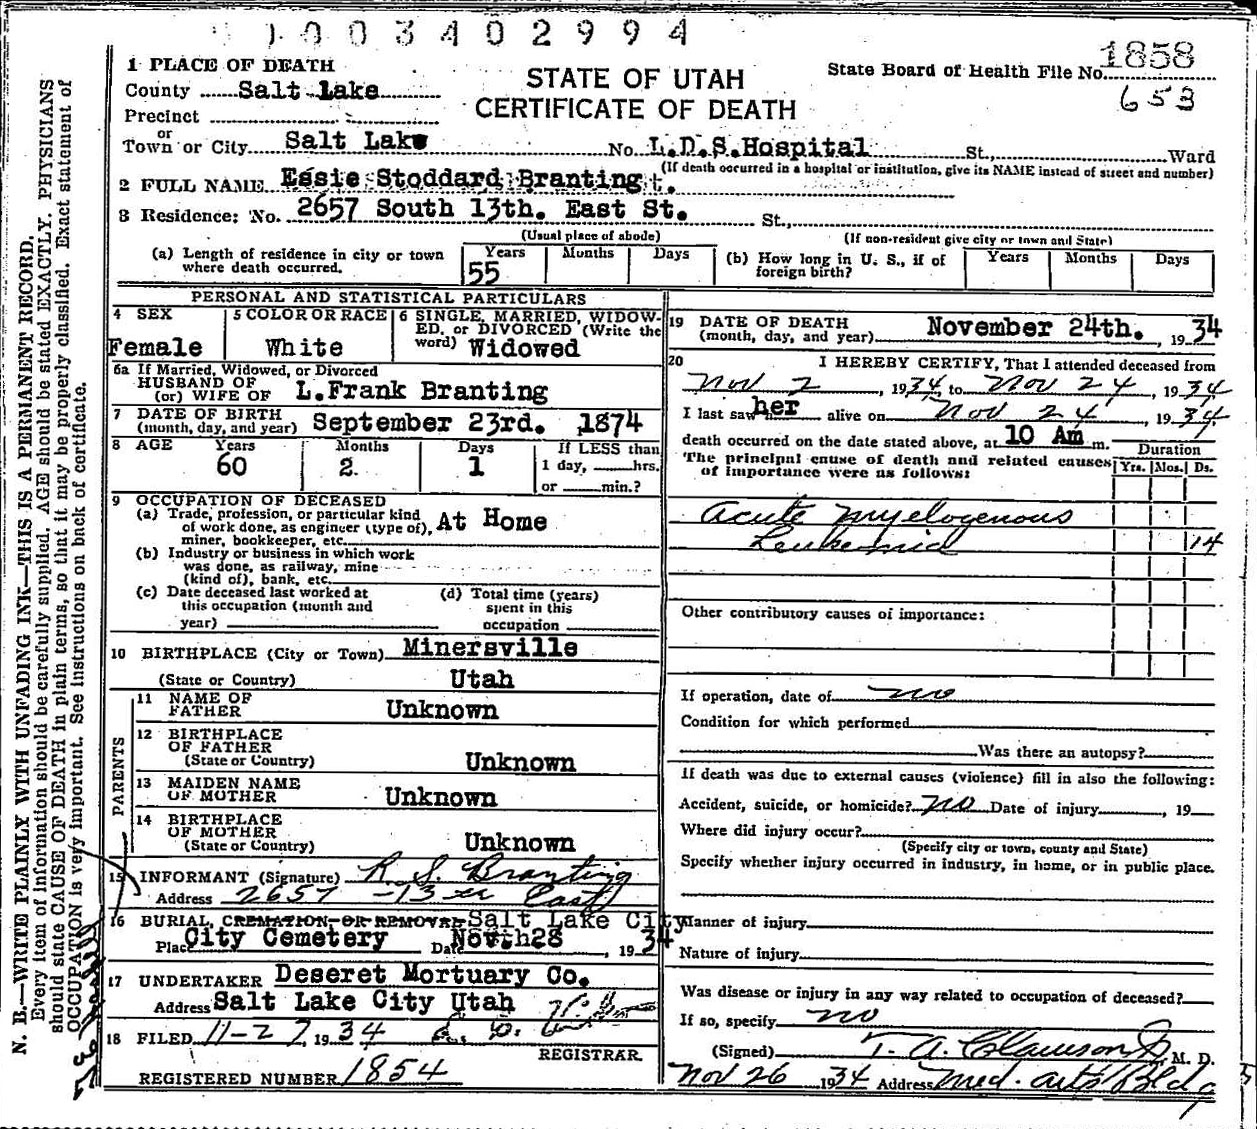 1003402994
1858
653
STATE OF UTAH
CERTIFICATE OF DEATH
State Board of Health File No.
1 PLACE OF DEATH
County Salt Lake
Precinct
or
Town or City Salt Lake No. L.D.S.Hospital St., Ward
(If death occurred in a hospital or institution, give its NAME instead of street and number)
2 FULL NAME Essie Stoddard Branting
3 Residence: No. 2657 South 13th. East St. St.,
(Usual place of abode) (If non-resident give city or town and State)
(a) Length of residence in city or town where death occurred. Years 55 Months Days
(b) How long in U. S., if of foreign birth? Years Months Days
PERSONAL AND STATISTICAL PARTICULARS
4 SEX Female
5 COLOR OR RACE White
6 SINGLE, MARRIED, WIDOWED, or DIVORCED (Write the word) Widowed
6a If Married, Widowed, or Divorced
HUSBAND OF
(or) WIFE OF L.Frank Branting
7 DATE OF BIRTH
(month, day, and year) September 23rd. 1874
8 AGE Years 60 Months 2 Days 1 If LESS than
1 day, hrs.
or min.?
9 OCCUPATION OF DECEASED
(a) Trade, profession, or particular kind
of work done, as engineer (type of),
miner, bookkeeper, etc. At Home
(b) Industry or business in which work
was done, as railway, mine
(kind of), bank, etc.
(c) Date deceased last worked at
this occupation (month and
year)
(d) Total time (years)
spent in this
occupation
10 BIRTHPLACE (City or Town) Minersville
(State or Country) Utah
PARENTS
11 NAME OF
FATHER Unknown
12 BIRTHPLACE
OF FATHER
(State or Country) Unknown
13 MAIDEN NAME
OF MOTHER Unknown
14 BIRTHPLACE
OF MOTHER
(State or Country) Unknown
15 INFORMANT (Signature) R. S. Branting
Address 2657 - 13 East
16 BURIAL, CREMATION OR REMOVAL Salt Lake City
Place City Cemetery Date 28 1934
17 UNDERTAKER Deseret Mortuary Co.
Address Salt Lake City Utah
18 FILED 11-27 1934
REGISTRAR
REGISTERED NUMBER 1854
19 DATE OF DEATH
(month, day, and year) November 24th. , 1934
20 I HEREBY CERTIFY, That I attended deceased from
Nov 2 , 1934 to Nov 24 , 1934
I last saw her alive on Nov 24 , 1934
death occurred on the date stated above, at 10 Am m.
The principal cause of death and related causes
of importance were as follows:
Duration
Yrs. Mos. Ds.
Acute myelogenous
Leukemia 14
Other contributory causes of importance:
If operation, date of no
Condition for which performed
Was there an autopsy?
If death was due to external causes (violence) fill in also the following:
Accident, suicide, or homicide? no Date of injury , 19
Where did injury occur?
(Specify city or town, county and State)
Specify whether injury occurred in industry, in home, or in public place.
Manner of injury
Nature of injury
Was disease or injury in any way related to occupation of deceased?
If so, specify no
(Signed) T. A. Clawson Jr. M. D.
Nov 26 1934 Address Med. Arts Bldg
N. B.—WRITE PLAINLY WITH UNFADING INK—THIS IS A PERMANENT RECORD.
Every item of information should be carefully supplied. AGE should be stated EXACTLY. PHYSICIANS
should state CAUSE OF DEATH in plain terms, so that it may be properly classified. Exact statement of
OCCUPATION is very important. See instructions on back of certificate.